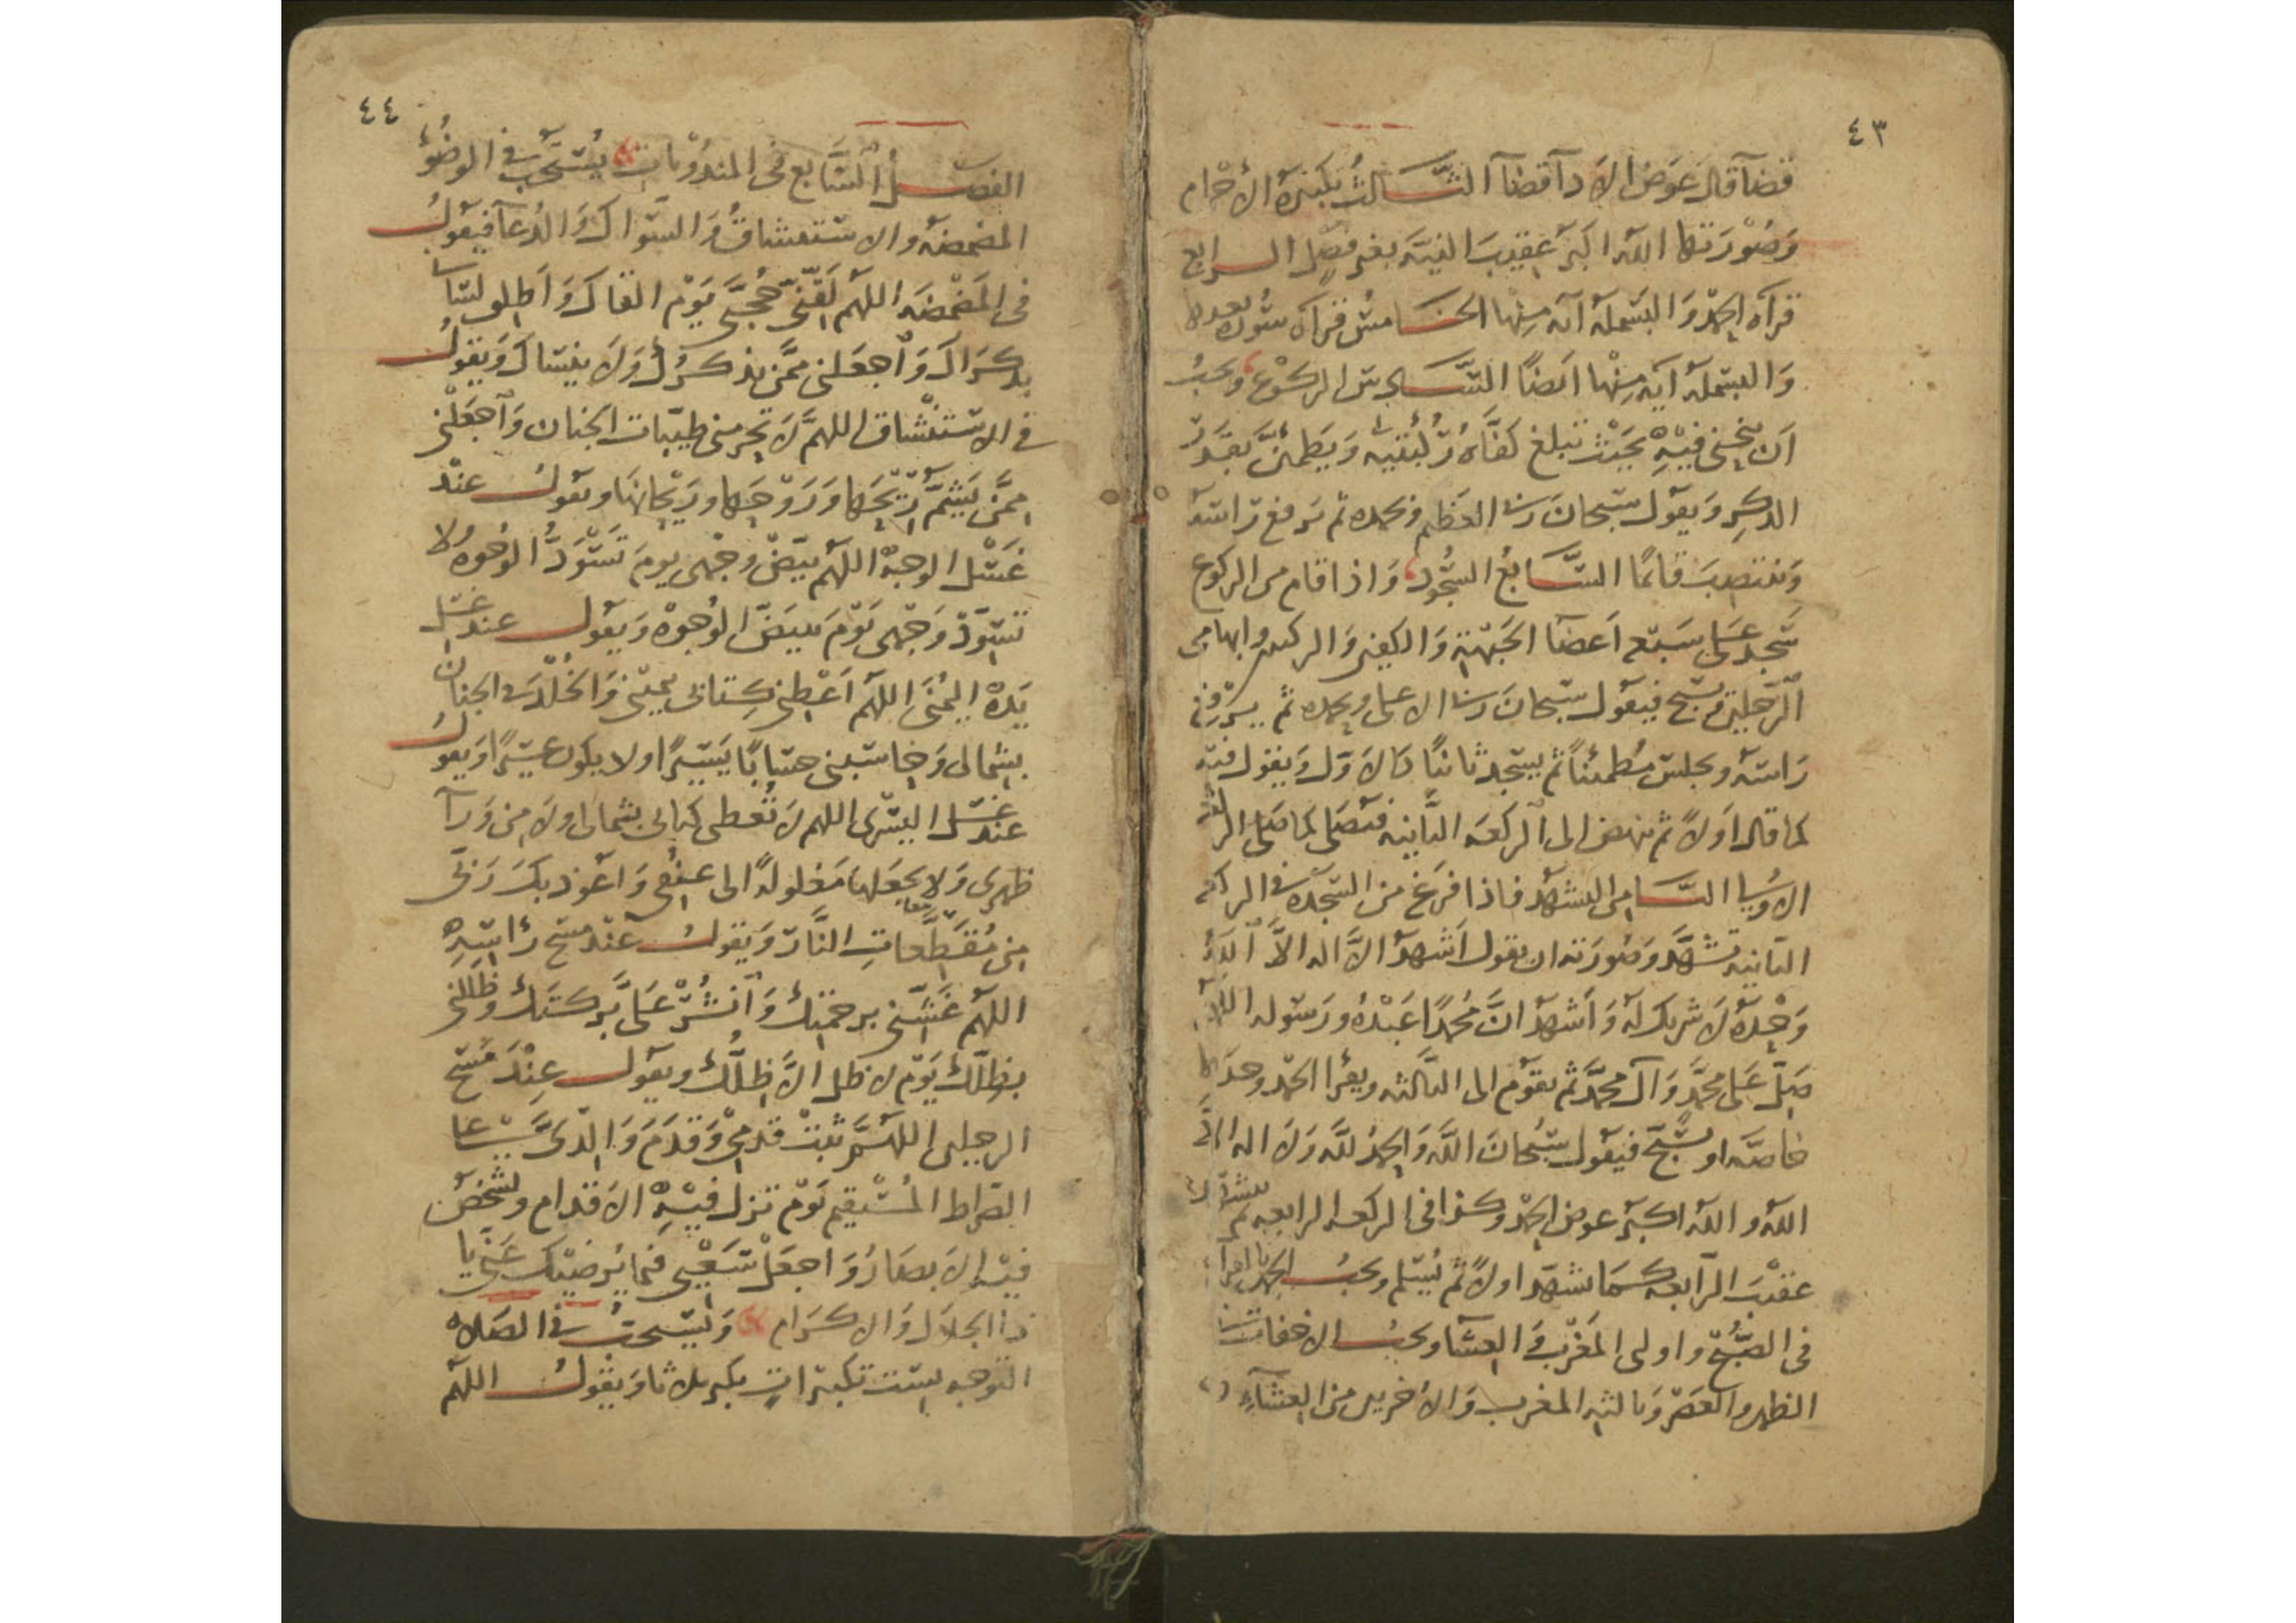 ٤٣
قضآ قال عوض الادآ قضآ الثالث تكبيرة الأحرام
وَصُوْرَتها اللّه اكبر عقيبَ النيَّة بغير فصْل الرابع
قرآة الحمد وَالبسْملة آية مِنها الخامسُ قرآة سُورة بعدها
وَالبسملة آيه مِنْها اَيضًا السَّادس الركوْع ويجبُ
اَن ينحني فيْهِ بحَيْث تبلغ كفَّاهُ رُكْبتيه وَيَطمئنَّ بقدْر
الذكِر وَيقول سبحانَ ربي العَظيم وبحمده ثم يَرفع رَاسَه
وَينتصِبَ قائمًا السَّابعُ السُّجُود وَاذا قام من الركوع
سَجد عَلى سَبْع اَعضآ الجَبْهة وَالكفين وَالركبتين وابهامي
الرّجلين ويسبح فيقول سبحانَ ربي الاعلى وبحمده ثم يرفع
رَاسَه ويجلس مُطمئنًا ثم يسجد ثانيًا كالاوّل وَيقول فيه
كما قال اولاً ثم ينهض الى الركعة الثانيه فيصَلى كما صَلى الركعة
الاولى الثامن التشهّد فاذا فرَغ من السّجدة في الركعة
الثانيه تشهَّد وَصُورَته ان يقول اَشهدُ الاَّ اله الاَّ اللّهُ
وَحْدهُ لاَ شريك له وَاَشهدُ انَّ مُحمدًا عَبْدُهُ ورَسوله اللّهم
صَلّ عَلى محمَّدٍ وَآل محمَّد ثم يقوْم الى الثَّالثه ويقرا الحمْد وحدَها
خاصّه او يسَبِّح فيقول سُبْحانَ اللّه وَالحمدُ للّه وَلاَ اله الاَّ
اللّه واللّه اكبَر عوض الحمْد وكذا في الركعه الرابعه ثم يتشهّد
عقيْبَ الرّابعه كما تشهّد اولاً ثم يُسَلم ويجبُ الجهر بالقرآة
في الصُّبْح واولى المَغْرب وَالعِشَا ويجبُ الاخفات في
الظهر والعَصْر وَثالثه المغرب وَالأخريين من العشَآءِ
٤٤
الفصل السَّابع في المندُوبات يُسْتحَبّ في الوضُوءِ
المضمضه والاسْتنشاقُ وَالسّوَاك وَالدُعآ فيقولُ
في المَضْمضَه اللّهم لَقّنّى حُجَّتى يَوْم القاك وَاَطلق لسَانى
بذكرَاك وَاجعَلنى ممَّن يذكرُك وَلاَ ينسَاك وَيقولُ
في الاسْتنْشاق اللهمَّ لاَ تحرمنى طيبّات الجنان وَاجعَلْنى
ممَّن يَشمّ رِيْحَها وَرَوْحَها ورَيْحانهَا ويقولُ عنْد
غَسْل الوجْهْ اللّهم بيّضْ وجْهى يومَ تَسْوَدُّ الوُجُوهُ ولا
تسَوّدْ وَجْهى يَوْمَ تبيَضّ الوُجوْهُ وَيقول عند غسْل
يَدهْ اليُمْنى اللّهم اَعْطِنى كِتابى بيمينى وَالخلْدَ في الجنان
بشمالى وَحَاسبْنى حسَابًا يَسْيرًا ولا يكون عسْيرًا وَيقولُ
عند غَسْل اليسْرى اللهم لاَ تُعطى كتابى بشمالى ولاَ من وَرَآ
ظهرى وَلا تجعَلها مَغلولةً الى عنقى وَاعُوذ بكَ رَبّى
مِن مُقَطَّعاتِ النَّار وَيقولُ عنْد مَسْح رَأسِهِ
اللّهم غَشّنى برحْمتك وَانشُرْ عَلىَّ بَركتك وَظللنى
بظلّك يَوْم لا ظل الاَّ ظلُّك ويقول عِنْدَ مَسْح
الرجلين اللّهُمَّ ثبتْ قدَمىْ وَقدَمَ وَالِدَىَّ عَلى
الصّراط المُسْتقيم يَوْم تزل فيْهِ الاَقدام وتشخص
فيْه الاَبصَارُ وَاجعَلْ سَعْيى فيما يُرضيْك عَنّى يا
ذا الجلاَل وَالاكرام وَيُسْتحبُ في الصَلاه
التوجه بسِت تكبيْراتٍ يكبر ثلاثا وَيقولُ اللّهم